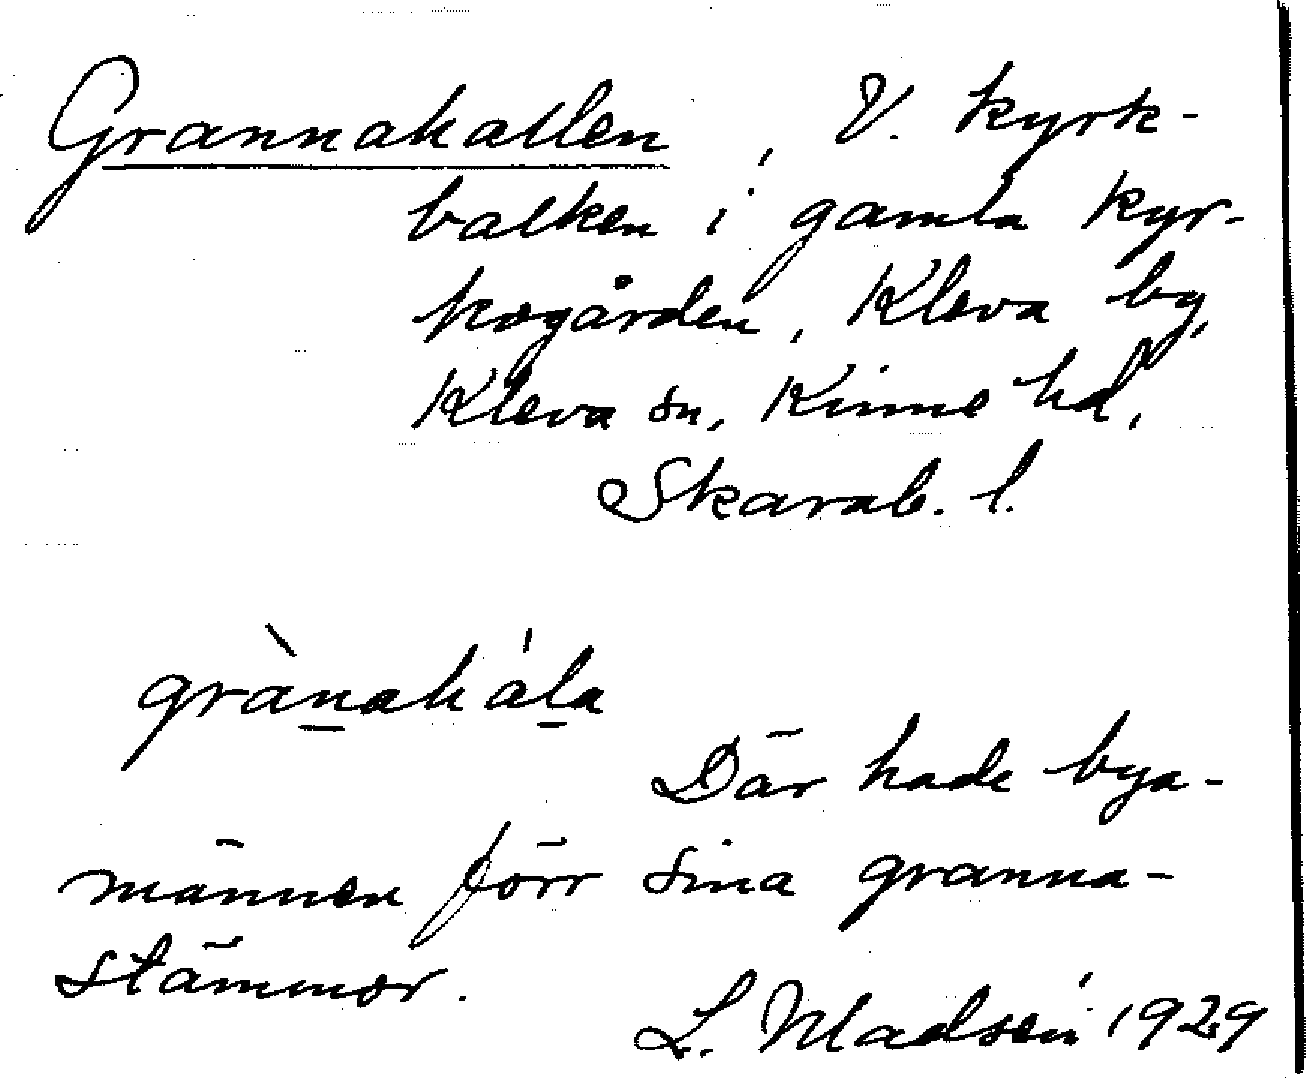 Grannahallen, V. kyrk-
balken i gamla kyr-
kogården, Kleva by,
Kleva sn, Kinne hd,
Skarab. l.
grànahála
Där hade bya-
männen förr sina granna-
stämmor.
L. Madsén 1929